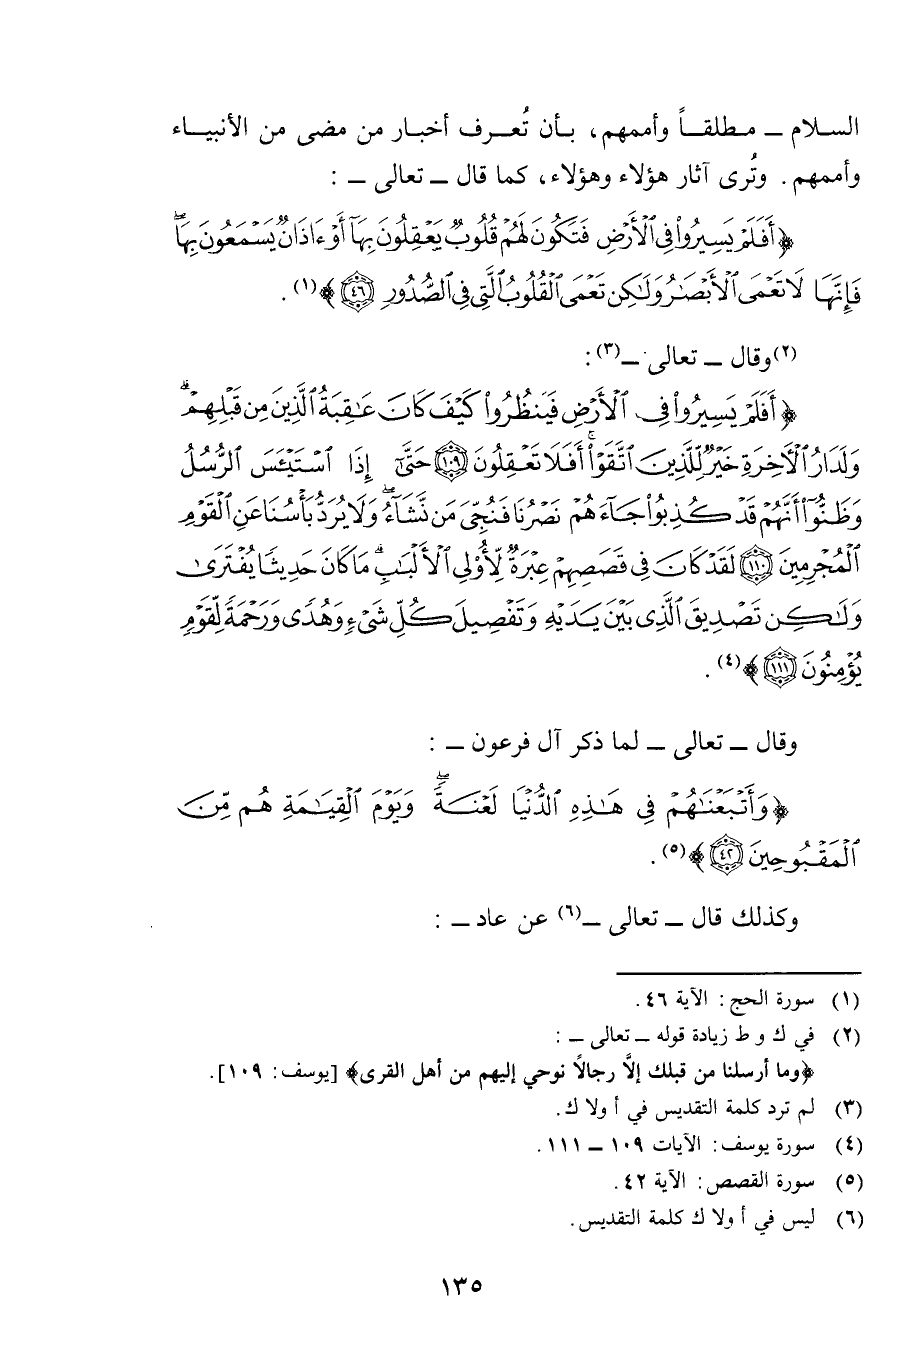 السلام ــ مطلقاً وأممهم، بأن تُعرف أخبار من مضى من الأنبياء
وأممهم. وتُرى آثار هؤلاء وهؤلاء، كما قال ــ تعالى ــ :
﴿أَفَلَمۡ يَسِيرُواْ فِي ٱلۡأَرۡضِ فَتَكُونَ لَهُمۡ قُلُوبٞ يَعۡقِلُونَ بِهَآ أَوۡ ءَاذَانٞ يَسۡمَعُونَ بِهَاۖ
فَإِنَّهَا لَا تَعۡمَى ٱلۡأَبۡصَٰرُ وَلَٰكِن تَعۡمَى ٱلۡقُلُوبُ ٱلَّتِي فِي ٱلصُّدُورِ ٤٦﴾(١).
(٢)وقال ــ تعالى ــ(٣):
﴿أَفَلَمۡ يَسِيرُواْ فِي ٱلۡأَرۡضِ فَيَنظُرُواْ كَيۡفَ كَانَ عَٰقِبَةُ ٱلَّذِينَ مِن قَبۡلِهِمۡۗ
وَلَدَارُ ٱلۡأٓخِرَةِ خَيۡرٞ لِّلَّذِينَ ٱتَّقَوۡاْۚ أَفَلَا تَعۡقِلُونَ ١٠٩ حَتَّىٰٓ إِذَا ٱسۡتَيۡـَٔسَ ٱلرُّسُلُ
وَظَنُّوٓاْ أَنَّهُمۡ قَدۡ كُذِبُواْ جَآءَهُمۡ نَصۡرُنَا فَنُجِّيَ مَن نَّشَآءُۖ وَلَا يُرَدُّ بَأۡسُنَا عَنِ ٱلۡقَوۡمِ
ٱلۡمُجۡرِمِينَ ١١٠ لَقَدۡ كَانَ فِي قَصَصِهِمۡ عِبۡرَةٞ لِّأُوْلِي ٱلۡأَلۡبَٰبِۗ مَا كَانَ حَدِيثٗا يُفۡتَرَىٰ
وَلَٰكِن تَصۡدِيقَ ٱلَّذِي بَيۡنَ يَدَيۡهِ وَتَفۡصِيلَ كُلِّ شَيۡءٖ وَهُدٗى وَرَحۡمَةٗ لِّقَوۡمٖ
يُؤۡمِنُونَ ١١١﴾(٤).
وقال ــ تعالى ــ لما ذكر آل فرعون ــ :
﴿وَأَتۡبَعۡنَٰهُمۡ فِي هَٰذِهِ ٱلدُّنۡيَا لَعۡنَةٗۖ وَيَوۡمَ ٱلۡقِيَٰمَةِ هُم مِّنَ
ٱلۡمَقۡبُوحِينَ ٤٢﴾(٥).
وكذلك قال ــ تعالى ــ(٦) عن عاد ــ :
(١) سورة الحج: الآية ٤٦.
(٢) في ك و ط زيادة قوله ــ تعالى ــ :
﴿وما أرسلنا من قبلك إلَّا رجالًا نوحي إليهم من أهل القرى﴾ [يوسف: ١٠٩].
(٣) لم ترد كلمة التقديس في أ ولا ك.
(٤) سورة يوسف: الآيات ١٠٩ ــ ١١١.
(٥) سورة القصص: الآية ٤٢.
(٦) ليس في أ ولا ك كلمة التقديس.
١٣٥